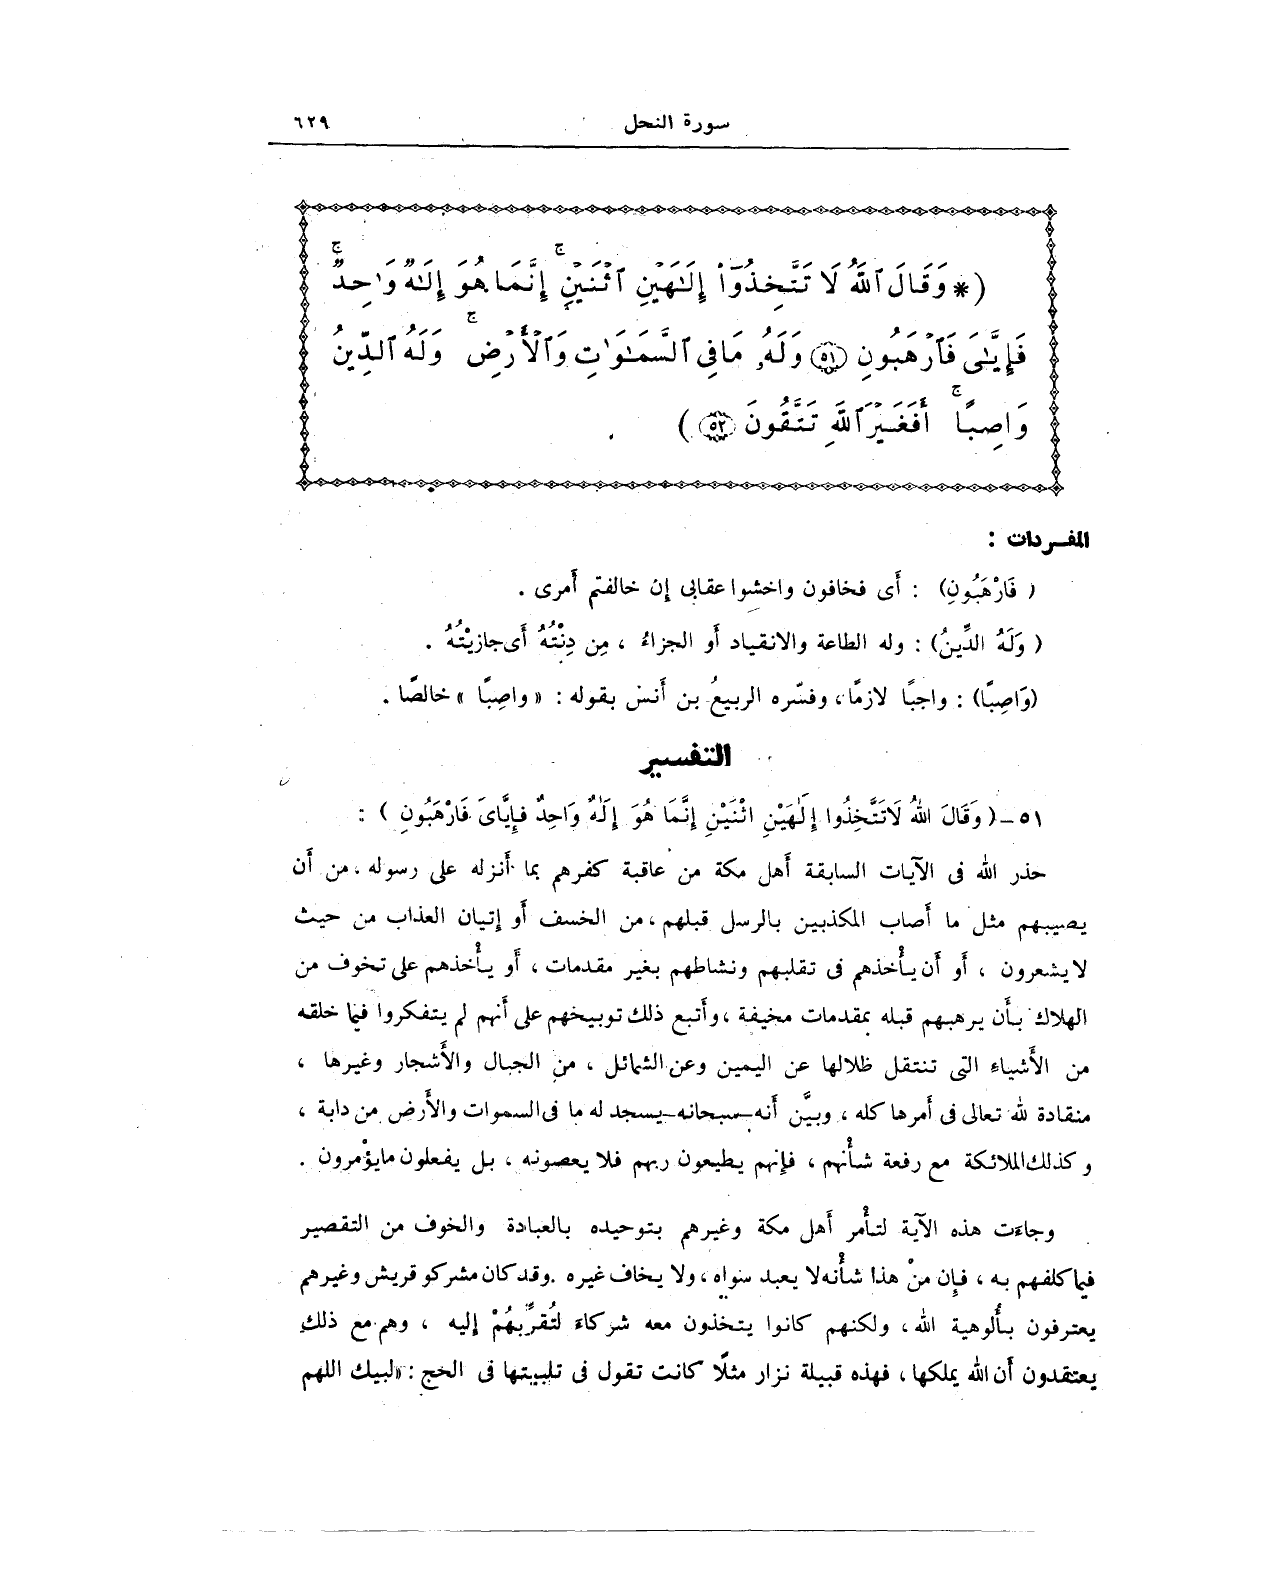 سورة النحل ٦٢٩
(* وَقَالَ ٱللَّهُ لَا تَتَّخِذُوٓا۟ إِلَـٰهَيْنِ ٱثْنَيْنِ ۖ إِنَّمَا هُوَ إِلَـٰهٌ وَٰحِدٌ ۖ
فَإِيَّـٰىَ فَٱرْهَبُونِ ٥١ وَلَهُۥ مَا فِى ٱلسَّمَـٰوَٰتِ وَٱلْأَرْضِ ۚ وَلَهُ ٱلدِّينُ
وَاصِبًا ۚ أَفَغَيْرَ ٱللَّهِ تَتَّقُونَ ٥٢ )
المفـردات :
( فَارْهَبُونِ) : أَى فخافون واخشوا عقابى إن خالفتم أَمرى .
( وَلَهُ الدِّينُ) : وله الطاعة والانقياد أَو الجزاءُ ، مِن دِنْتُهُ أَى جازيْتُهُ .
(وَاصِبًا) : واجبًا لازمًا، وفسّره الربيعُ بن أَنس بقوله : « واصِبًا » خالصًا .
التفسير
٥١ـ ( وَقَالَ اللهُ لَا تَتَّخِذُوا إِلَٰهَيْنِ اثْنَيْنِ إِنَّمَا هُوَ إِلَٰهٌ وَاحِدٌ فَإِيَّاىَ فَارْهَبُونِ ) :
حذر الله فى الآيات السابقة أَهل مكة من عاقبة كفرهم بما أنزله على رسوله ، من أَن
يصيبهم مثل ما أَصاب المكذبين بالرسل قبلهم ، من الخسف أَو إتيان العذاب من حيث
لا يشعرون ، أَو أَن يأْخذهم فى تقلبهم ونشاطهم بغير مقدمات ، أَو يأْخذهم على تخوف من
الهلاك بأَن يرهبهم قبله بمقدمات مخيفة ، وأَتبع ذلك توبيخهم على أنهم لم يتفكروا فيما خلقه
من الأَشياء التى تنتقل ظلالها عن اليمين وعن الشمائل ، من الجبال والأَشجار وغيرها ،
منقادة لله تعالى فى أَمرها كله ، وبيَّن أَنه ـ سبحانه ـ يسجد له ما فى السموات والأَرض من دابة ،
وكذلك الملائكة مع رفعة شأْنهم ، فإنهم يطيعون ربهم فلا يعصونه ، بل يفعلون مايؤْمرون .
وجاءَت هذه الآية لتأْمر أَهل مكة وغيرهم بتوحيده بالعبادة والخوف من التقصير
فيما كلفهم به ، فإن منْ هذا شأْنه لا يعبد سواه ، ولا يخاف غيره . وقد كان مشركو قريش وغيرهم
يعترفون بأُلوهية الله ، ولكنهم كانوا يتخذون معه شركاءَ لتُقرِّبهُمْ إليه ، وهم مع ذلك
يعتقدون أَن الله يملكها ، فهذه قبيلة نزار مثلًا كانت تقول فى تلبيتها فى الحج : «لبيك اللهم